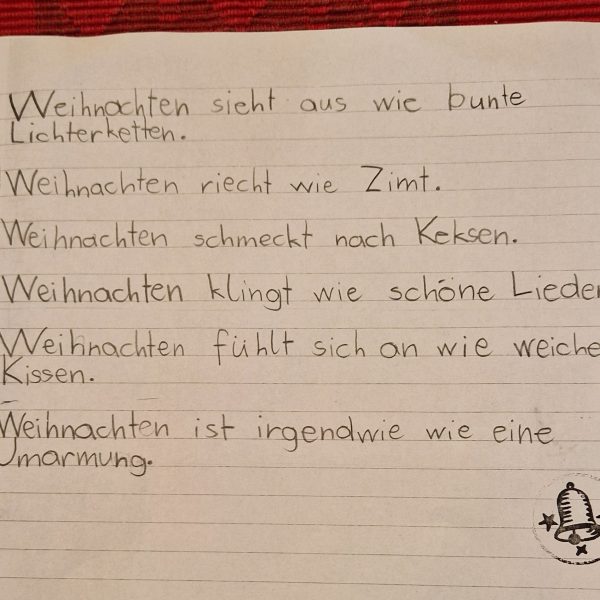 Weihnachten sieht aus wie bunte
Lichterketten.
Weihnachten riecht wie Zimt.
Weihnachten schmeckt nach Keksen.
Weihnachten klingt wie schöne Lieder
Weihnachten fühlt sich an wie weiche
Kissen.
Weihnachten ist irgendwie wie eine
Umarmung.